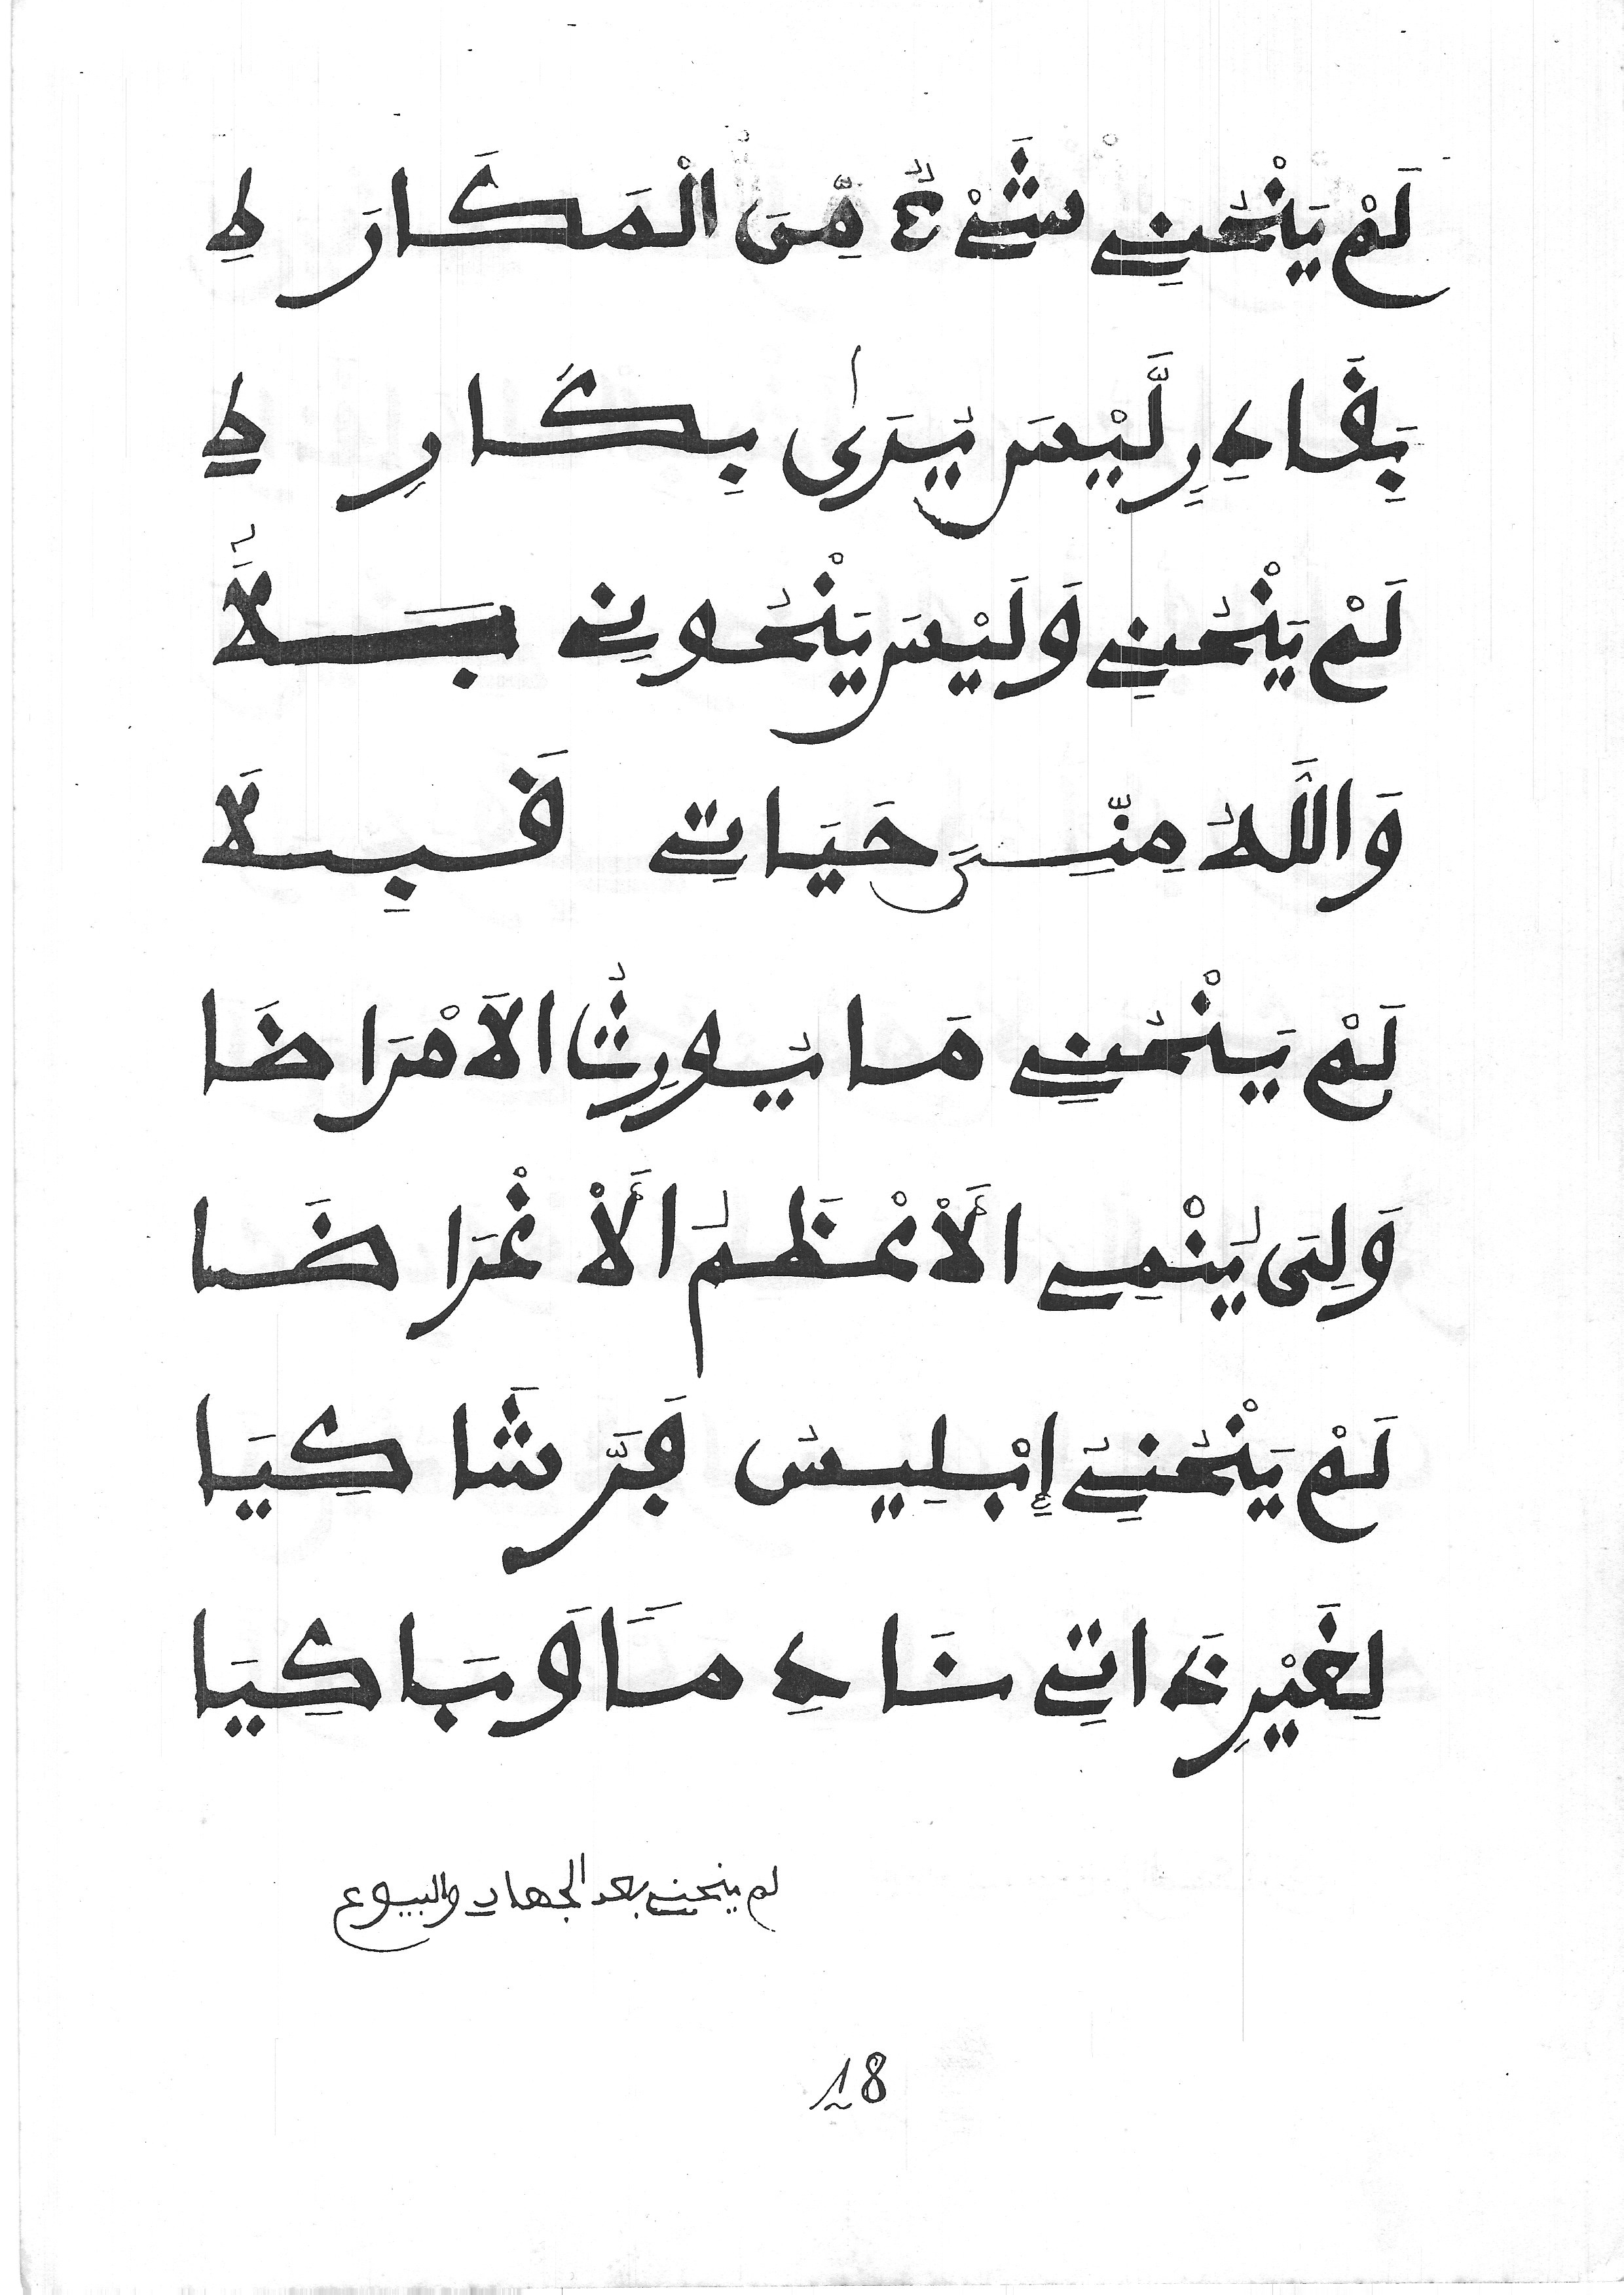 لَمْ يَنْحُنِے شَےْءٌ مِّنَ الْمَكَارَ هِ
بِقَادِرٍ لَّيْسَ يُرَىٰ بِكَارِ هِ
لَمْ يَنْحُنِے وَلَيْسَ يَنْحُونِے بَلَاً
وَاللَّهُ مِنِّے حَيَاتِے قَبِلَا
لَمْ يَنْحُنِے مَا يُورِثُ الاَمْرَاضَا
وَلِى يَنْمِے الْأَعْظَمُ الْأَغْرَاضَا
لَمْ يَنْحُنِے إِبْلِيسُ فَرَّ شَاكِيَا
لِغَيْرِ ذَاتِے نَادِماً وَبَاكِيَا
لم ينحنے بعد الجهاد والبيوع
18